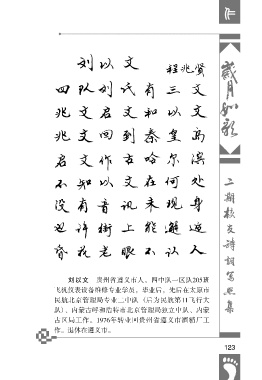 刘以文
程兆贤
四队刘氏有三文
兆文启文和以文
兆文回到秦皇岛
启文作古哈尔滨
不知以文在何处
没有音讯未现身
也许街上能邂逅
昏花老眼不认人
刘以文 贵州省遵义市人。四中队一区队205班
飞机仪表设备维修专业学员。毕业后，先后在太原市
民航北京管理局专业二中队（后为民航第11飞行大
队）、内蒙古呼和浩特市北京管理局独立中队、内蒙
古区局工作。1976年转业回贵州省遵义市酒精厂工
作。退休在遵义市。
岁月如歌
二期校友诗词写照集
123